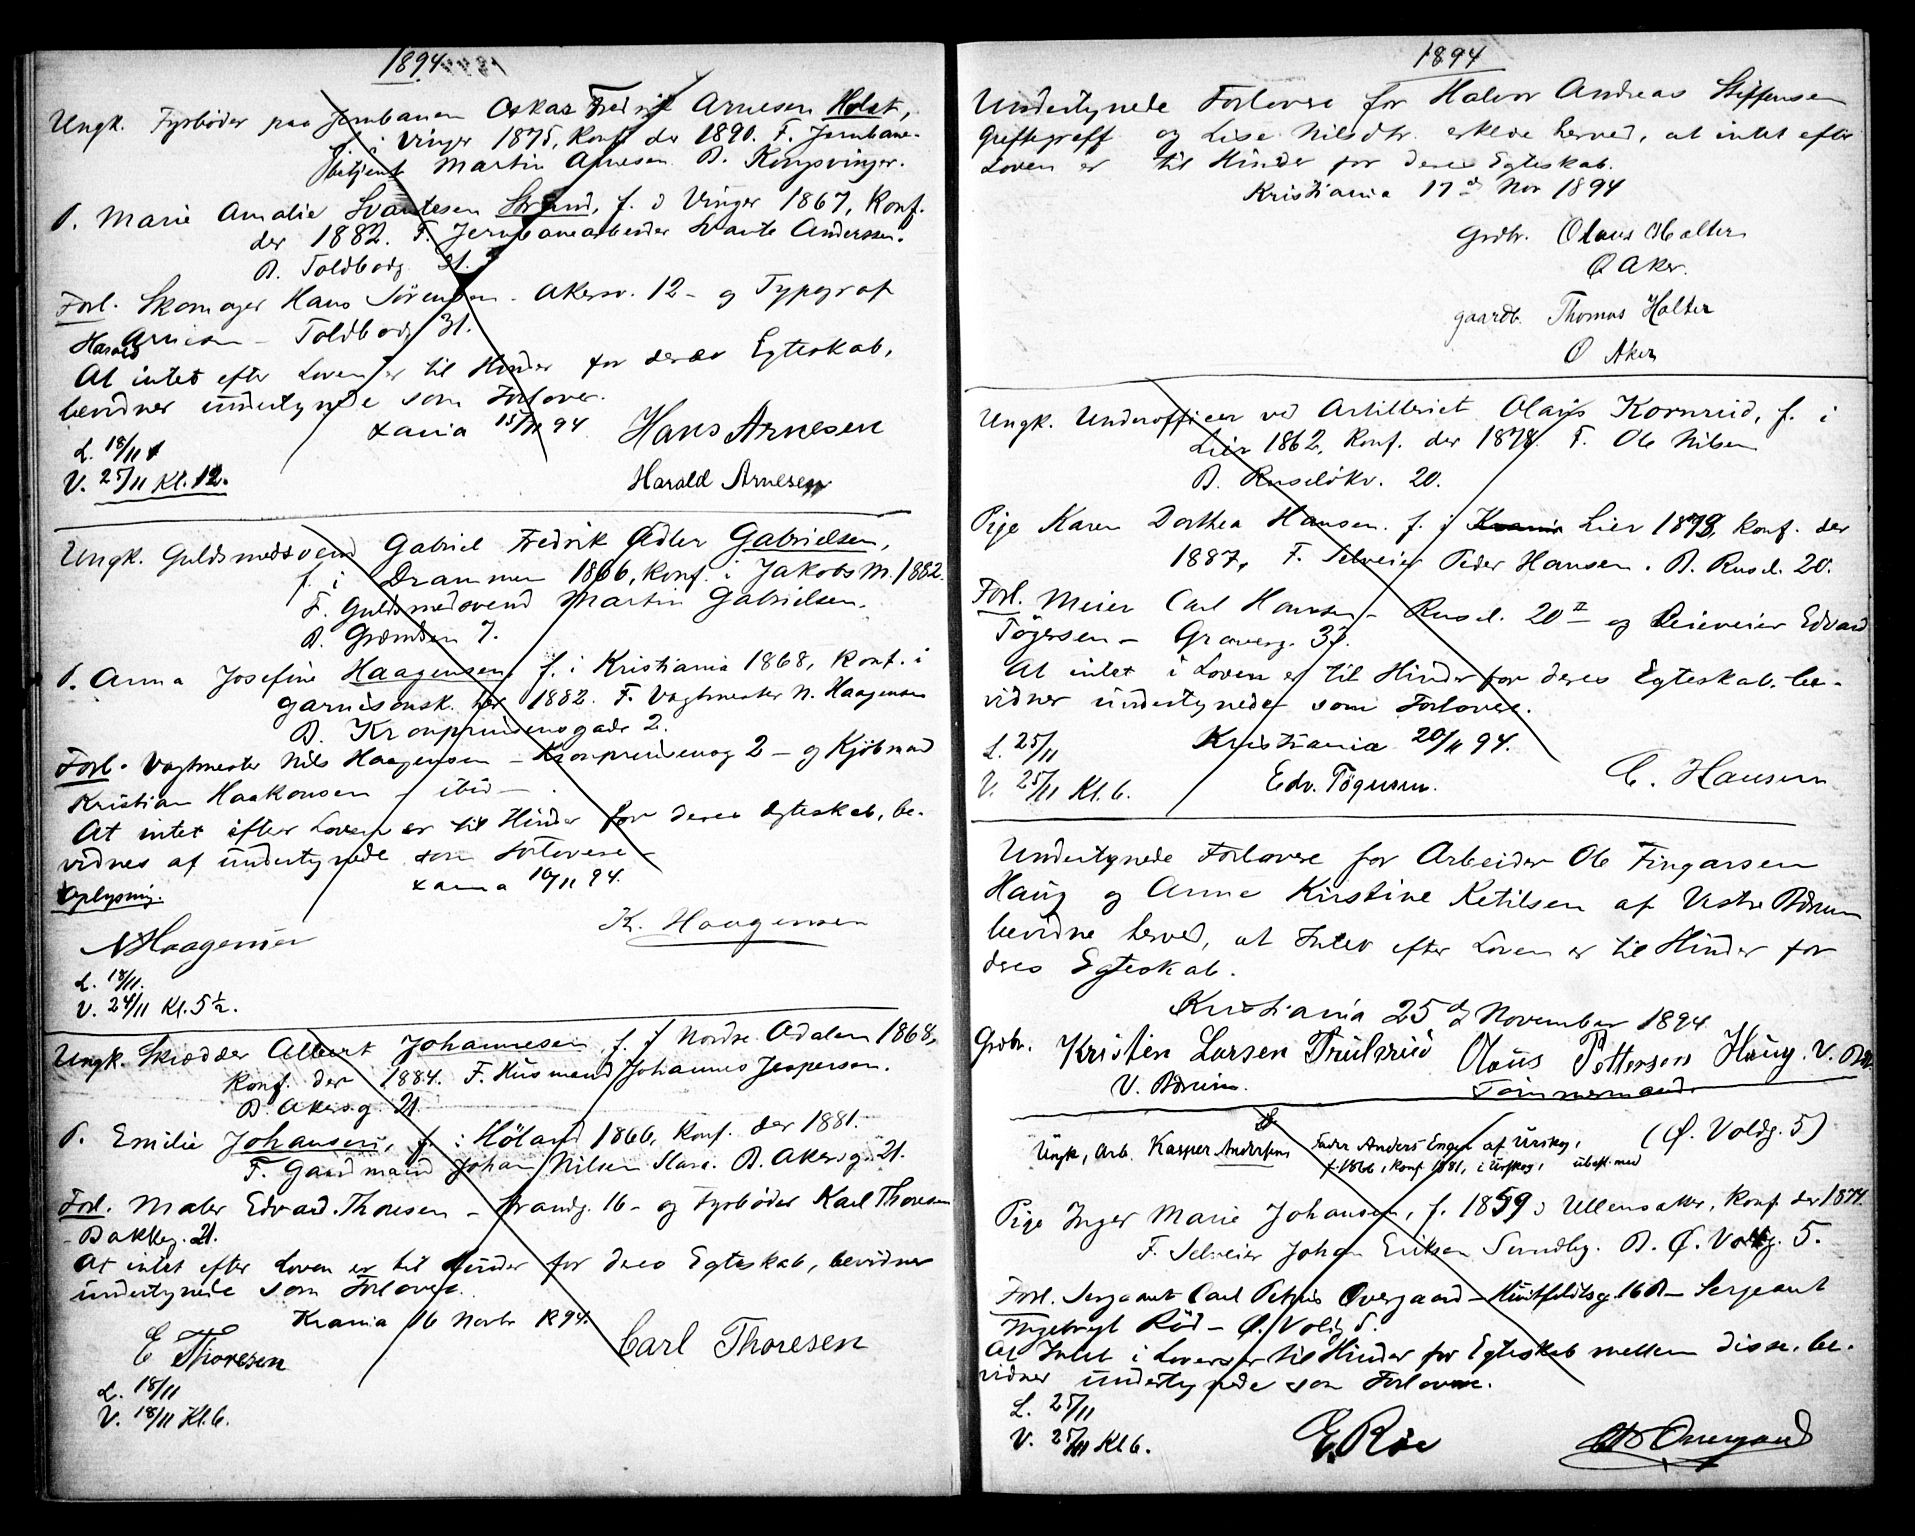 1894
Ungk. Fyrbøder paa Jernbanen Oskar Fredrik Arnesen Holst,
f. i Vinger 1875, Konf. der 1890. F. Jernbane-
betjent Martin Arnesen. B. Kongsvinger.
P. Marie Amalie Svantesen Strand, f. i Vinger 1867, Konf.
der 1882. F. Jernbanearbeider Svante Anderssen.
B. Toldbodg. 31.
Forl. Skomager Hans Sørensen - Akersv. 12 - og Typograf
Harald Arnesen - Toldbodg 31.
At intet efter Loven er til Hinder for deres Egteskab,
bevidner undertegnede som Forlover.
xania 15/11 94
Hans Arnesen
L. 18/11
V. 25/11 Kl. 12.
Harald Arnesen
Ungk. Guldsmedsvend Gabriel Fredrik Adler Gabrielsen,
f. i Drammen 1866, Konf. i Jakobs M. 1882.
F. Guldsmedsvend Martin Gabrielsen.
B. Grændsen 7.
P. Anna Josefine Haagensen, f. i Kristiania 1868, Konf. i
Garnisonsk. her 1882. F. Vagtmester N. Haagensen
B. Kronprindsensgade 2.
Forl. Vagtmester Nils Haagensen - Kronprindsensg 2 - og Kjøbmand
Kristian Haakonsen - ibid -
At intet efter Loven er til Hinder for deres Egteskab, be-
vidnes af undertegnede som Forlovere -
xania 16/11 94.
Oplysning.
K. Haagensen
N Haagensen
L. 18/11.
V. 24/11 Kl. 5½.
Ungk. Skrædder Albert Johannesen, f. i Nordre Odalen 1868,
Konf. der 1884. F. Husmand Johannes Jespersen.
B. Akersg. 21.
P. Emilie Johansen, f. i Høland 1866, Konf. der 1881.
F. Gaardmand Johan Nilsen . B. Akersg. 21.
Forl. Maler Edvard Thoresen - Strandg. 16 - og Fyrbøder Karl Thoresen
- Bakkeg. 21.
At intet efter Loven er til Hinder for deres Egteskab, bevidner
undertegnede som Forlovere.
Krania 16 Novbr 1894.
E Thoresen
Carl Thoresen
L. 18/11
V. 18/11 Kl. 6.
1894
Undertegnede Forlovere for Halvor Andreas Steffensen
og Lise Nilsdtr. erklære herved, at intet efter
Loven er til Hinder for deres Egteskab.
Kristiania 17d Nov 1894
Grdbr. Olaus Halter
Ø Aker.
gaardb. Thomas Halter
Ø Aker
Ungk. Underofficer ved Artilleriet Olaus Kornrud, f. i
Lier 1862, Konf. der 1878. F. Ole Nilsen
B. Ruseløkv. 20.
Pige Karen Dorthea Hansen. f. i Lier 1873, Konf. der
1887, F. Selveier Peder Hansen. B. Rusel. 20.
Forl. Meier Carl Hansen - Rusel. 20 II - og Leieveier Edvard
Tøgersen - Graverg. 37.
At intet i Loven er til Hinder for deres Egteskab, be-
vidner undertegnede som Forlovere.
L. 25/11
Kristiania 20/11 94.
V. 25/11 Kl. 6.
Edv. Tøgersen.
C. Hansen
Undertegnede Forlovere for Arbeider Ole Fingarsen
Haug og Anne Kirstine Ketilsen af Vestre Bærum
bevidne herved, at Intet efter Loven er til Hinder for
deres Egteskab.
Kristiania 25de November 1894
Grdbr. Kristen Larsen Olaus Pettersen Haug. V. Bær
V. Bærum.
Tømmermand
Ungk, Arb. Kasper Andersens Fader Anders Engen af Urskog, (Ø. Voldg. 5)
f. 1866, Konf 1881, i Urskog, ubesl. med
Pige Inger Marie Johansen, f. 1859 i Ullensaker, Konf der 1874.
F. Selveier Johan Eriksen Sundby. B. Ø. Voldg. 5.
Forl. Sergeant Carl Petrus Overgaard - Huitfeldtsg. 16 B - Sergeant
Ingebrigt Rød - Ø. Voldg 5.
At Intet i Loven er til Hinder for Egteskab mellem disse, be-
vidner undertegnede som Forlovere.
L. 25/11
V. 25/11 Kl 6.
E. Røe
Overgaard